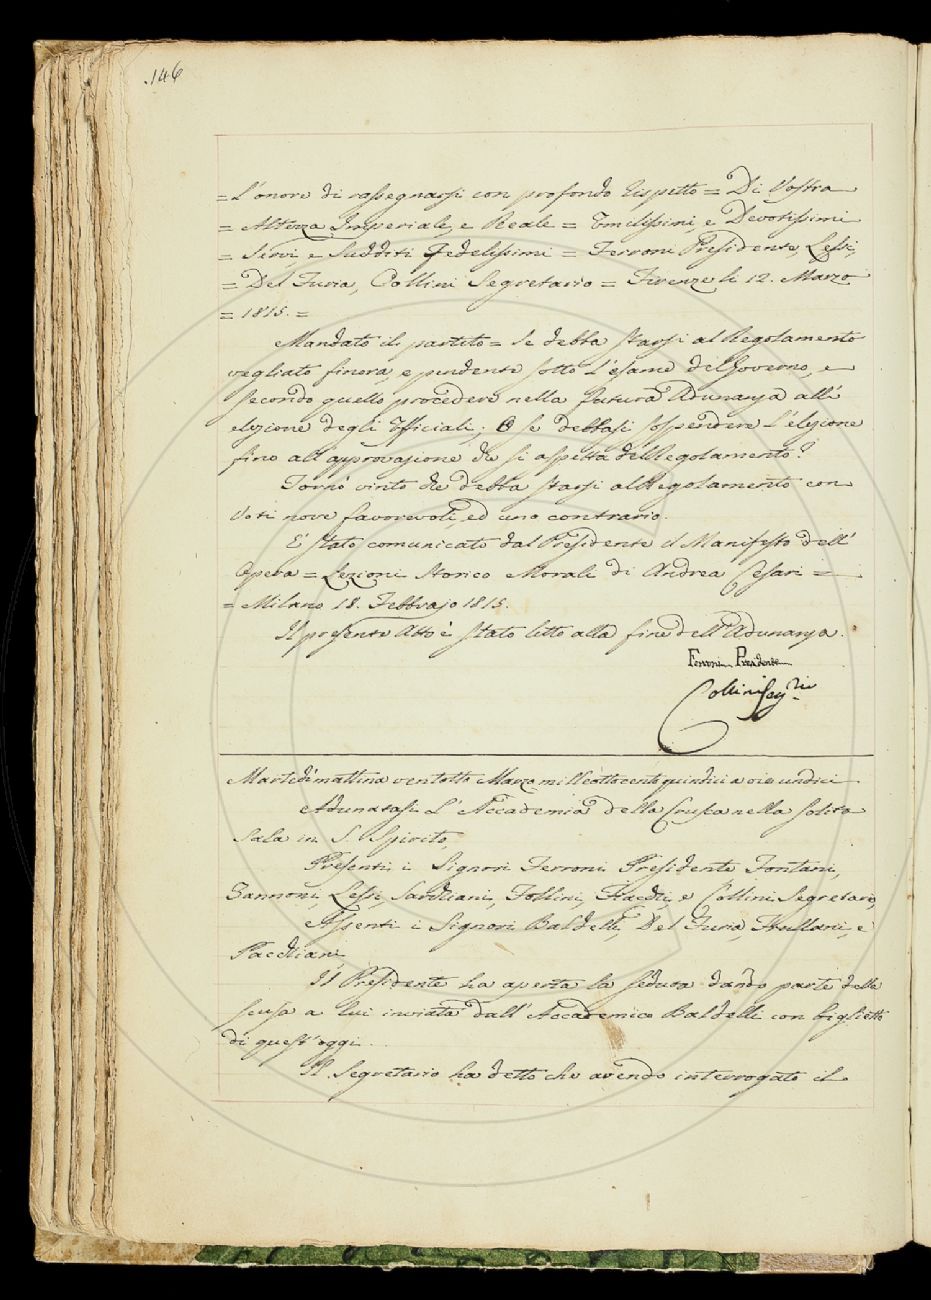 146
= L'onore di rassegnarsi con profondo Rispetto = Di Vostra
= Altezza Imperiale, e Reale = Umilissimi, e Devotissimi
= Servi e Sudditi Fedelissimi = Ferroni Presidente, Lessi,
= Del Furia, Collini Segretario = Firenze li 12. Marzo
= 1815. =
Mandato il partito = Se debba starsi al Regolamento
vegliato finora, e pendente sotto l'esame del Governo, e
secondo quello procedere nella futura Adunanza all'
elezione degli Ufficiali; O se debbasi sospendere l'elezione
fino all'approvazione che si aspetta del Regolamento?
Tornò vinto che debba starsi al Regolamento con
Voti nove favorevoli, ed uno contrario.
E' stato comunicato dal Presidente il Manifesto dell'
Opera = Lezioni Storico Morali di Andrea Cesari =
= Milano 18. Febbrajo 1815.
Il presente Atto è stato letto alla fine dell'Adunanza.
Ferroni Presidente
Collini Seg.rio
Martedì mattina ventotto Marzo mille ottocento quindici a ore undici
Adunatasi L'Accademia della Crusca nella solita
Sala in S. Spirito,
Presenti i Signori Ferroni Presidente Fontani,
Zannoni, Lessi, Sarchiani, Follini, Fiacchi, e Collini Segretario,
Assenti i Signori Baldelli, Del Furia, Hullani, e
Pacchiani,
Il Presidente ha aperta la seduta dando parte della
scusa a lui inviata dall'Accademico Baldelli con biglietto
di quest'oggi.
Il Segretario ha detto che avendo interrogato il